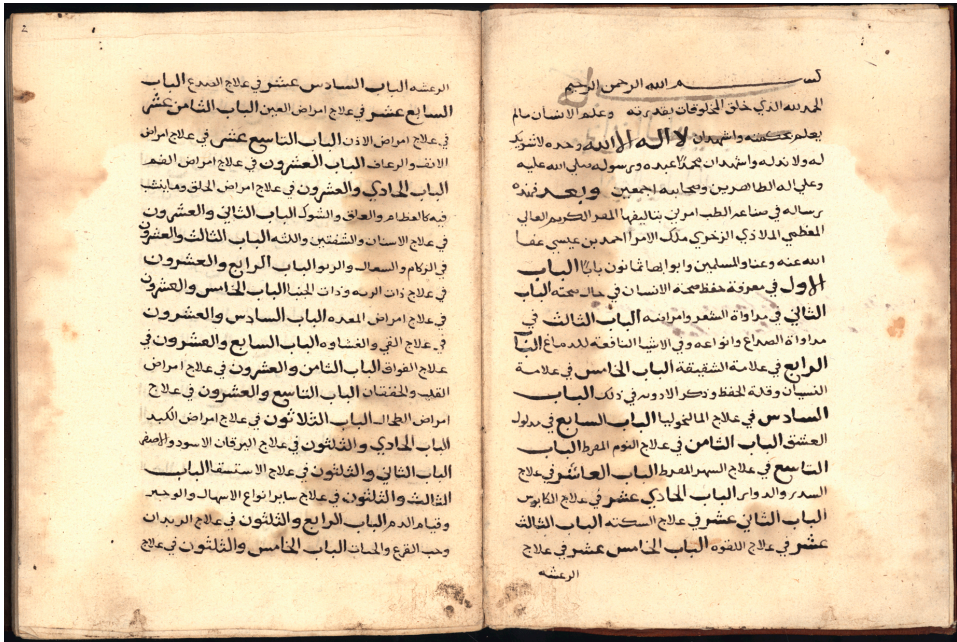 بسم الله الرحمن الرحيم
الحمد لله الذي خلق المخلوقات بقدرته وعلم الانسان مالم
يعلم بحكمته واشهد ان لا اله الا الله وحده لا شريك
له ولا ند له واشهد ان محمدا عبده ورسوله صلي الله عليه
وعلي اله الطاهرين وصحابته اجمعين وبعد فهذه
رساله في صناعه الطب امرني بتاليفها المقر الكريم العالي
المعظمي الملاذي الذخري ملك الامرا احمد بن عيسي عفا
الله عنه وعنا والمسلمين وابوابها ثمانون بابا الباب
الاول في معرفة حفظ صحة الانسان في حال صحته الباب
الثاني في مداواة الشعر وامراضه الباب الثالث في
مداواة الصداع وانواعه وفي الاشيا النافعة للدماغ الباب
الرابع في علامة الشقيقة الباب الخامس في علامة
النسيان وقلة الحفظ وذكر الادويه في ذلك الباب
السادس في علاج المالنخوليا الباب السابع في مدلول
العشق الباب الثامن في علاج النوم المفرط الباب
التاسع في علاج السهر المفرط الباب العاشر في علاج
السدر والدوار الباب الحادي عشر في علاج الكابوس
الباب الثاني عشر في علاج السكته الباب الثالث
عشر في علاج اللقوه الباب الخامس عشر في علاج
الرعشه
الرعشه الباب السادس عشر في علاج الصدع الباب
السابع عشر في علاج امراض العين الباب الثامن عشر
في علاج امراض الاذن الباب التاسع عشر في علاج امراض
الانف والرعاف الباب العشرون في علاج امراض الفم
الباب الحادي والعشرون في علاج امراض الحلق وما ينشب
فيه كالعظام والعلق والشوك الباب الثاني والعشرون
في علاج الاسنان والشفتين واللثه الباب الثالث والعشرون
في الزكام والسعال والربو الباب الرابع والعشرون
في علاج ذات الريه وذات الجنب الباب الخامس والعشرون
في علاج امراض المعده الباب السادس والعشرون
في علاج القي والغشاوه الباب السابع والعشرون في
علاج الفواق الباب الثامن والعشرون في علاج امراض
القلب والخفقان الباب التاسع والعشرون في علاج
امراض الطحال الباب الثلاثون في علاج امراض الكبد
الباب الحادي والثلثون في علاج اليرقان الاسود والاصفر
الباب الثاني والثلثون في علاج الاستسقا الباب
الثالث والثلثون في علاج ساير انواع الاسهال والوجع
وقيام الدم الباب الرابع والثلثون في علاج الديدان
وحب القرع والحيات الباب الخامس والثلثون في علاج